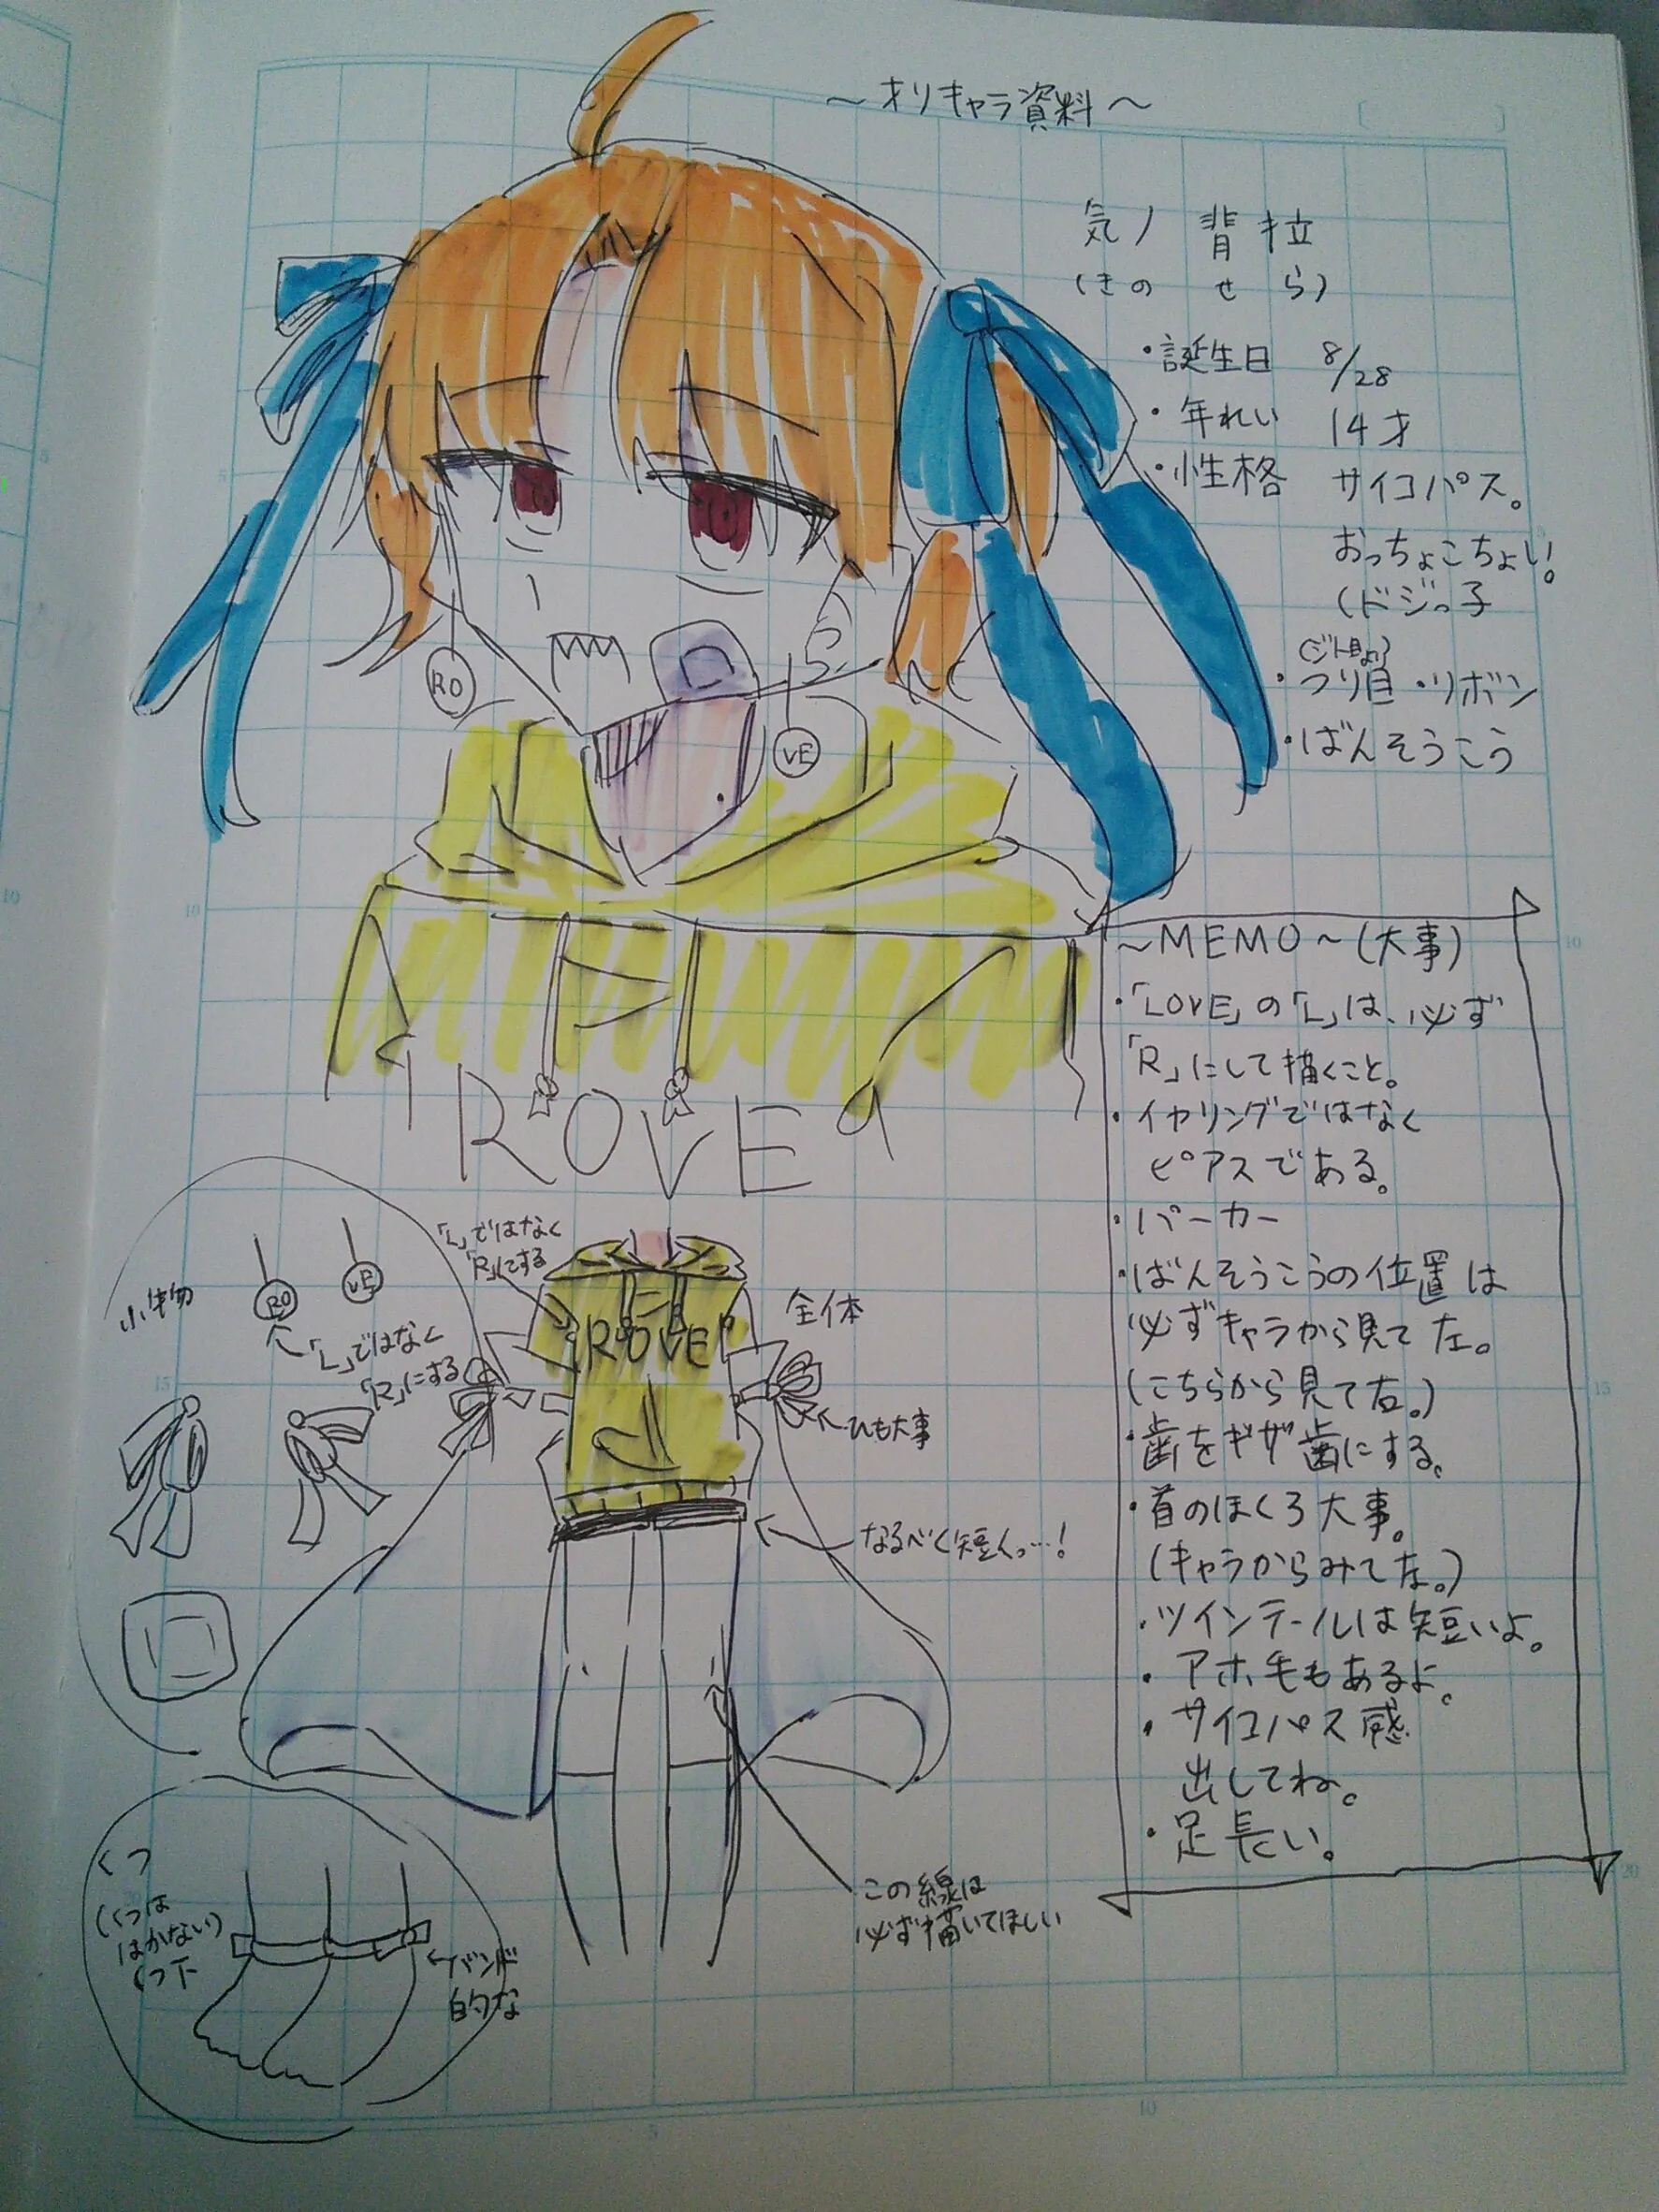 ～オリキャラ資料～
気ノ 背拉
(きの せら)
・誕生日 8/28
・年れい 14才
・性格 サイコパス。
おっちょこちょい!
(ドジっ子
(ジト目より)
・つり目・リボン
・ばんそうこう
RO
VE
ROVE
～MEMO～(大事)
・「LOVE」の「L」は、必ず
「R」にして描くこと。
・イヤリングではなく
ピアスである。
・パーカー
・ばんそうこうの位置は
必ずキャラから見て左。
(こちらから見て右。)
・歯をギザ歯にする。
・首のほくろ大事。
(キャラからみて左。)
・ツインテールは短いよ。
・アホ毛もあるよ。
・サイコパス感
出してね。
・足長い。
小物
RO
VE
「L」ではなく
「R」にする
「L」ではなく
「R」にする
ROVE
全体
ひも大事
なるべく短く…!
この線は
必ず描いてほしい
くつ
(くつは
はかない)
くつ下
バンド
的な